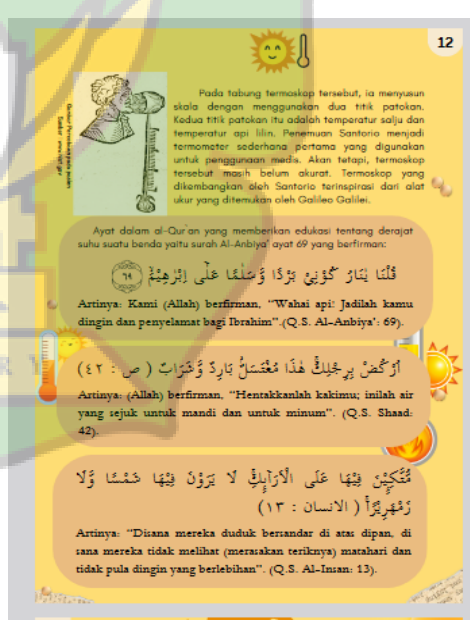 12
Pada tabung termoskop tersebut, ia menyusun
skala dengan menggunakan dua titik patokan.
Kedua titik patokan itu adalah temperatur salju dan
temperatur api lilin. Penemuan Santorio menjadi
termometer sederhana pertama yang digunakan
untuk penggunaan medis. Akan tetapi, termoskop
tersebut masih belum akurat. Termoskop yang
dikembangkan oleh Santorio terinspirasi dari alat
ukur yang ditemukan oleh Galileo Galilei.
Ayat dalam al-Qur`an yang memberikan edukasi tentang derajat
suhu suatu benda yaitu surah Al-Anbiya' ayat 69 yang berfirman:
قُلْنَا يٰنَارُ كُوْنِيْ بَرْدًا وَّسَلٰمًا عَلٰٓى اِبْرٰهِيْمَۙ ٦٩
Artinya: Kami (Allah) berfirman, “Wahai api! Jadilah kamu
dingin dan penyelamat bagi Ibrahim”.(Q.S. Al-Anbiya': 69).
اُرْكُضْ بِرِجْلِكَۚ هٰذَا مُغْتَسَلٌۢ بَارِدٌ وَّشَرَابٌ ( ص : ٤٢)
Artinya: (Allah) berfirman, “Hentakkanlah kakimu; inilah air
yang sejuk untuk mandi dan untuk minum”. (Q.S. Shaad:
42).
مُّتَّكِـِٕيْنَ فِيْهَا عَلَى الْاَرَاۤىِٕكِۚ لَا يَرَوْنَ فِيْهَا شَمْسًا وَّلَا
زَمْهَرِيْرًاۚ ( الانسان : ١٣)
Artinya: “Disana mereka duduk bersandar di atas dipan, di
sana mereka tidak melihat (merasakan teriknya) matahari dan
tidak pula dingin yang berlebihan”. (Q.S. Al-Insan: 13).